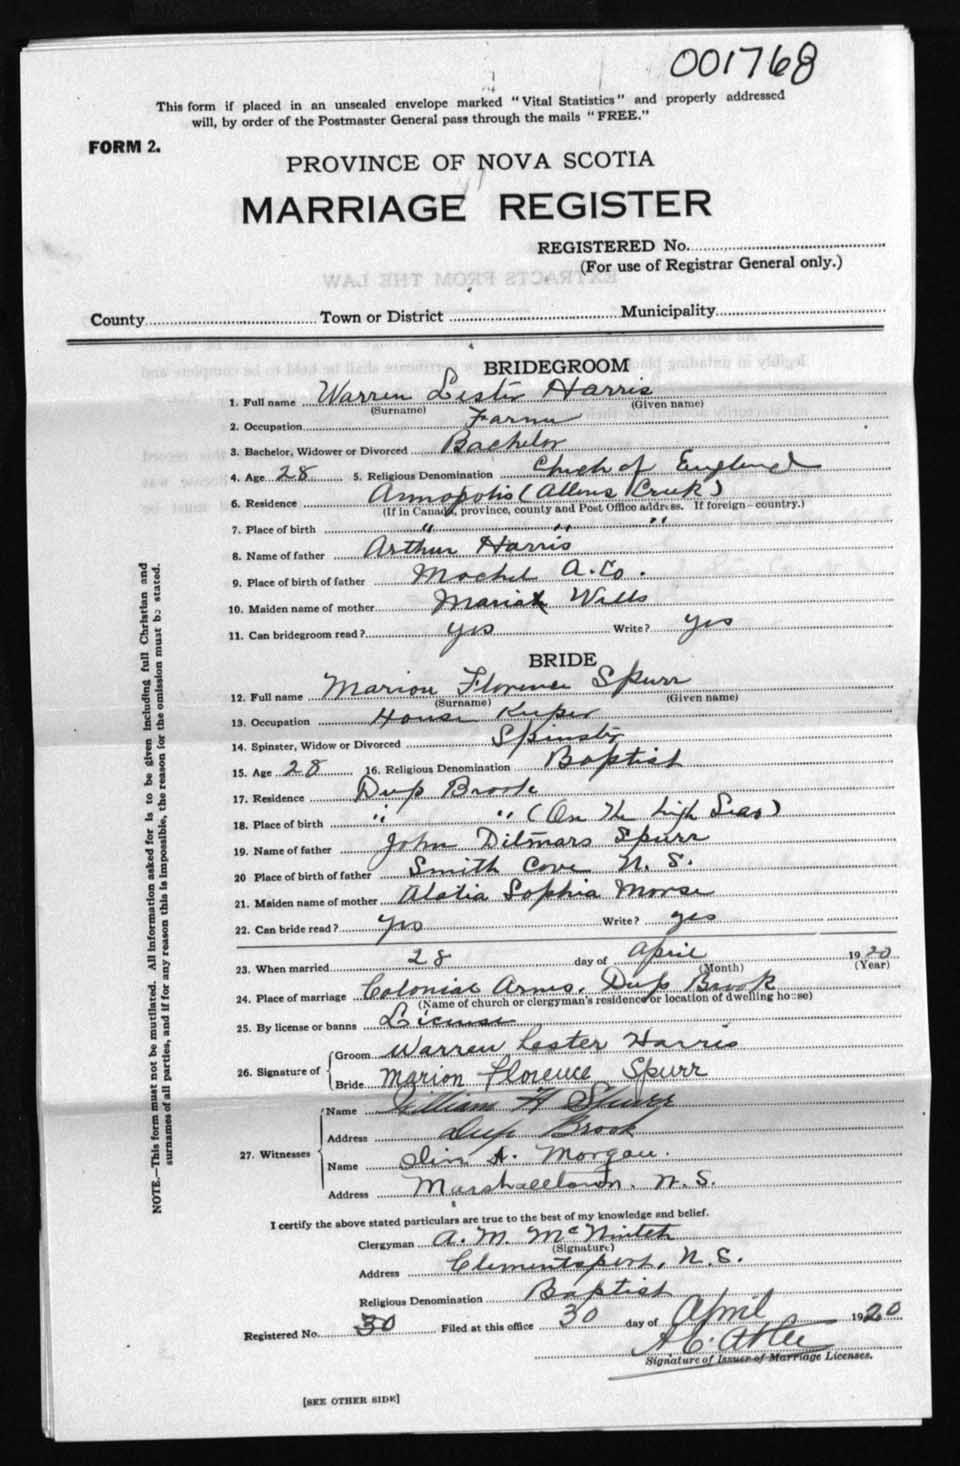 001768
This form if placed in an unsealed envelope marked "Vital Statistics" and properly addressed
will, by order of the Postmaster General pass through the mails "FREE."
FORM 2.
PROVINCE OF NOVA SCOTIA
MARRIAGE REGISTER
REGISTERED No.
(For use of Registrar General only.)
EXTRACTS FROM THE LAW
County Town or District Municipality
BRIDEGROOM
1. Full name Warren Lester Harris
(Surname) (Given name)
2. Occupation Farmer
3. Bachelor, Widower or Divorced Bachelor
4. Age 28 5. Religious Denomination Church of England
6. Residence Annapolis (Allens Creek)
(If in Canada, province, county and Post Office address. If foreign—country.)
7. Place of birth " " "
8. Name of father Arthur Harris
9. Place of birth of father Mochel A. Co.
10. Maiden name of mother Maria Wells
11. Can bridegroom read? yes Write? yes
BRIDE
12. Full name Marion Florence Spurr
(Surname) (Given name)
13. Occupation House Keeper
14. Spinster, Widow or Divorced Spinster
15. Age 28 16. Religious Denomination Baptist
17. Residence Deep Brook
18. Place of birth " " (On the high Seas)
19. Name of father John Ditmars Spurr
20 Place of birth of father Smith Cove N. S.
21. Maiden name of mother Alatia Sophia Morse
22. Can bride read? yes Write? yes
23. When married 28 day of April 1920
(Month) (Year)
24. Place of marriage Colonial Arms. Deep Brook
(Name of church or clergyman's residence or location of dwelling house)
25. By license or banns License
26. Signature of Groom Warren Lester Harris
Bride Marion Florence Spurr
27. Witnesses Name William H Spurr
Address Deep Brook
Name A. Morgan.
Address Marshalltown. N. S.
I certify the above stated particulars are true to the best of my knowledge and belief.
Clergyman A. M. McNintch
(Signature)
Address Clementsport, N. S.
Religious Denomination Baptist
Registered No. 30 Filed at this office 30 day of April 1920
A. C.
Signature of Issuer of Marriage Licenses.
[SEE OTHER SIDE]
NOTE.—This form must not be mutilated. All information asked for is to be given including full Christian and
surnames of all parties, and if for any reason this is impossible, the reason for the omission must be stated.